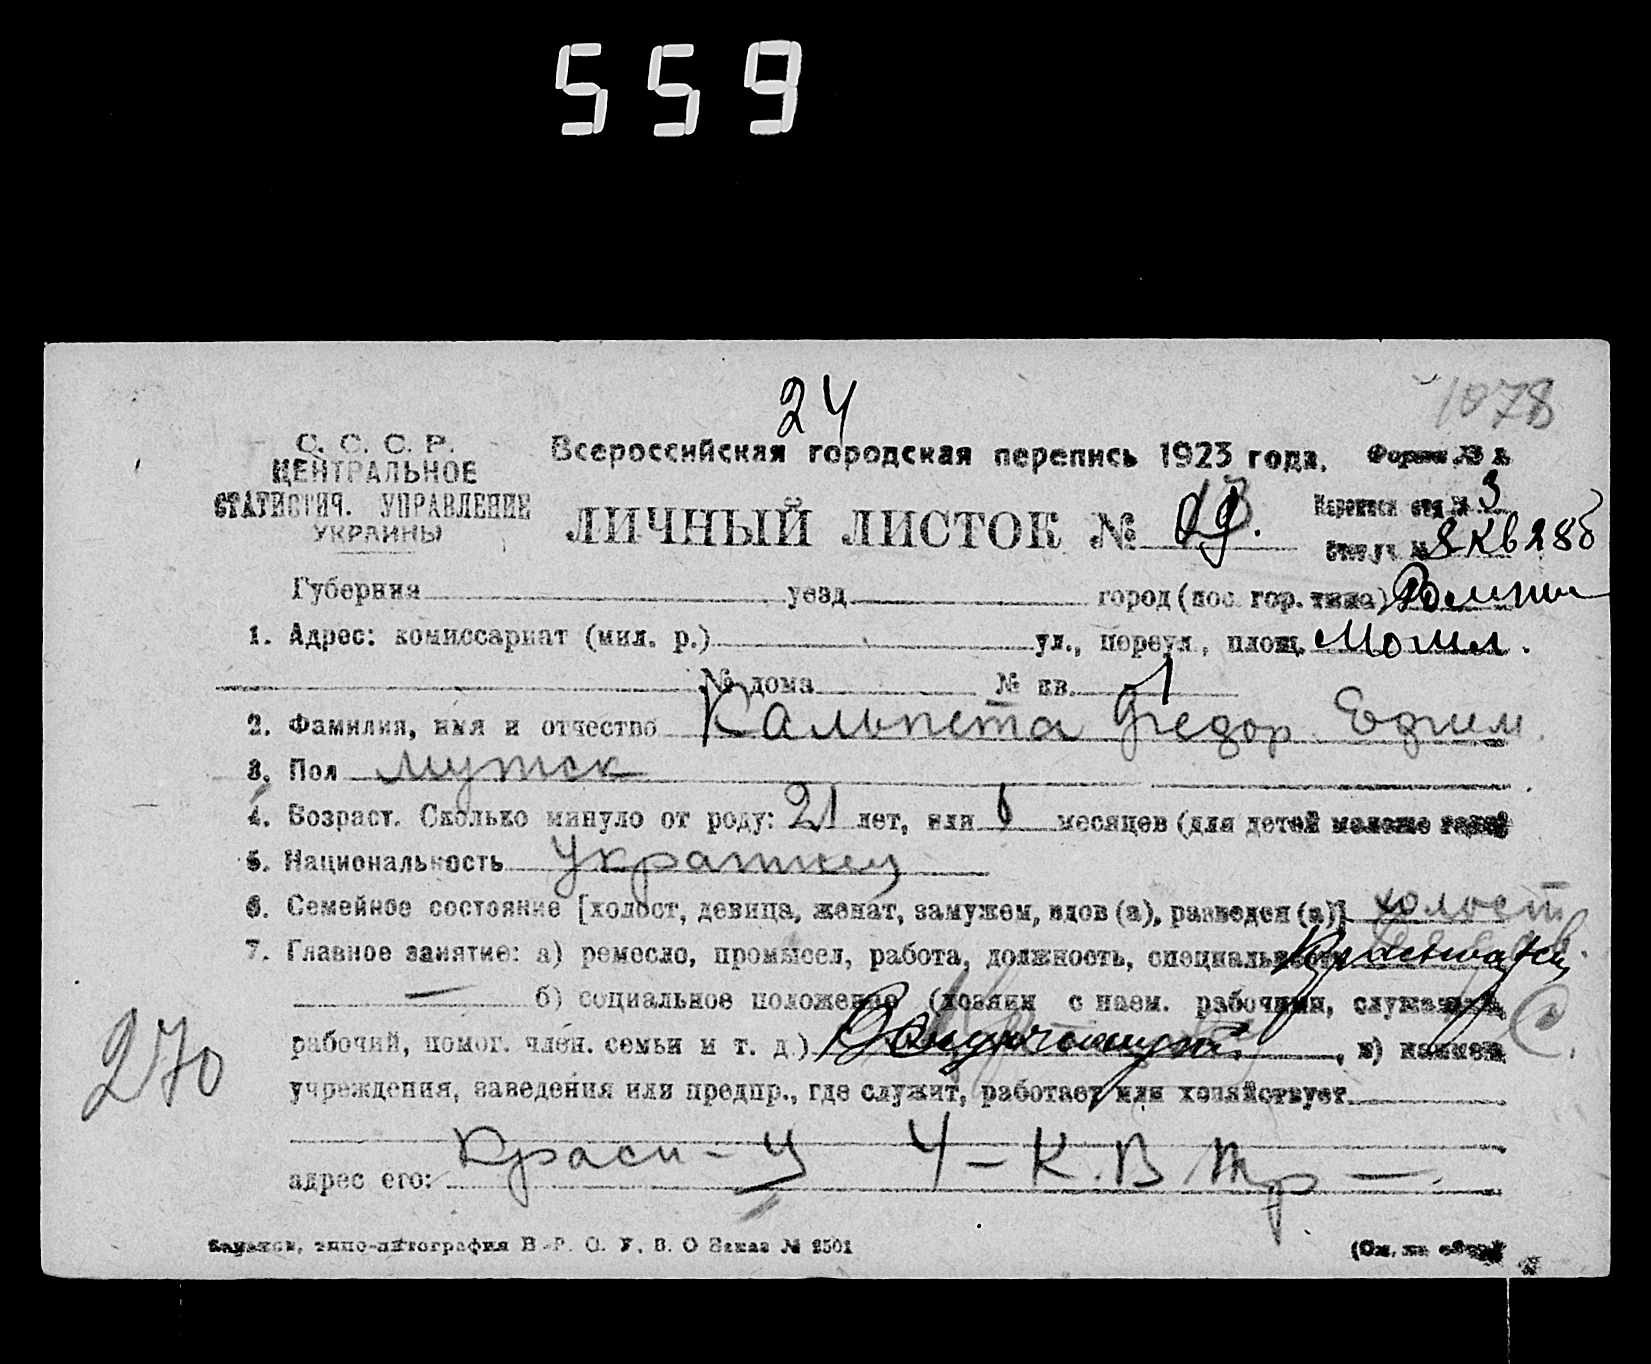 559
24
1078
С. С. С. Р.
ЦЕНТРАЛЬНОЕ
СТАТИСТИЧ. УПРАВЛЕНИЕ
УКРАИНЫ
Всероссийская городская перепись 1923 года.
Форма № 2.
ЛИЧНЫЙ ЛИСТОК №
Переписн отд № 3
Губерния уезд город (пос. гор. типа) Ромны
1. Адрес: комиссариат (мил. р.) ул., переул., площ.
№ дома № кв. 1
2. Фамилия, имя и отчество Кальпета Федор Ефим
3. Пол мужск
4. Возраст. Сколько минуло от роду: 21 лет, или месяцев (для детей моложе года)
5. Национальность Украинец
6. Семейное состояние [холост, девица, женат, замужем, вдов (а), разведен (а)] холост
7. Главное занятие: а) ремесло, промысел, работа, должность, специальность
б) социальное положение (хозяин с наем. рабочими, служащий,
270
рабочий, помог. член. семьи и т. д.) , в) наимен.
учреждения, заведения или предпр., где служит, работает или хозяйствует
адрес его:
типо-литография В. Р. О. У. В. О Заказ № 2501
(См. на обор.)